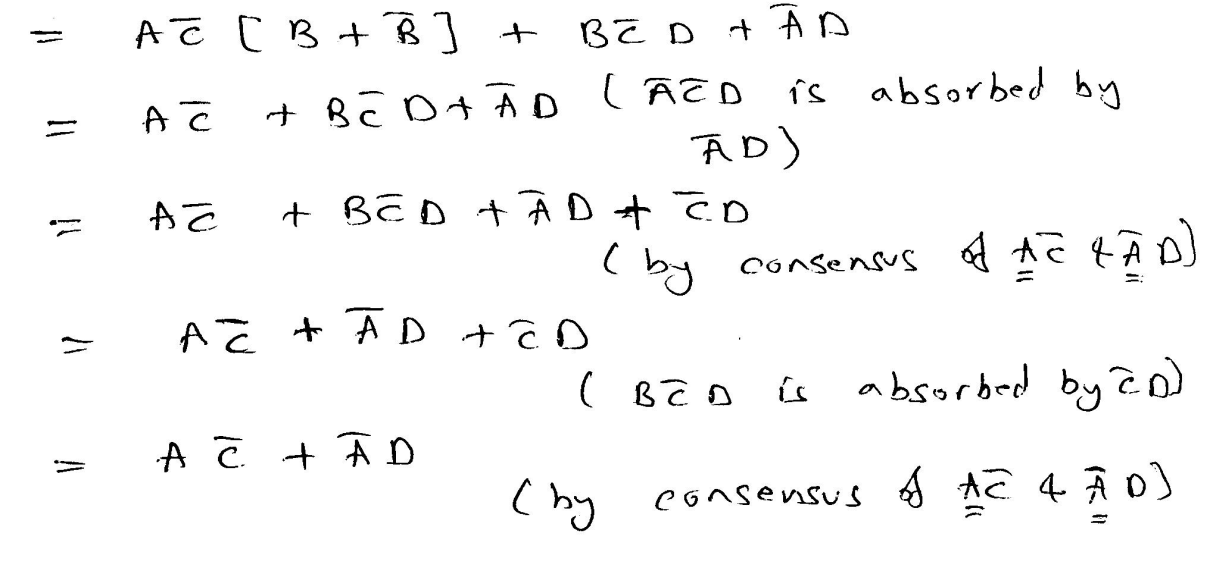 = AC̅ [ B + B̅ ] + BC̅D + A̅D
= AC̅ + BC̅D + A̅D ( A̅C̅D is absorbed by
A̅D)
= AC̅ + BC̅D + A̅D + C̅D
( by consensus of AC̅ & A̅D)
= AC̅ + A̅D + C̅D
( BC̅D is absorbed by C̅D)
= AC̅ + A̅D
( by consensus of AC̅ & A̅D)